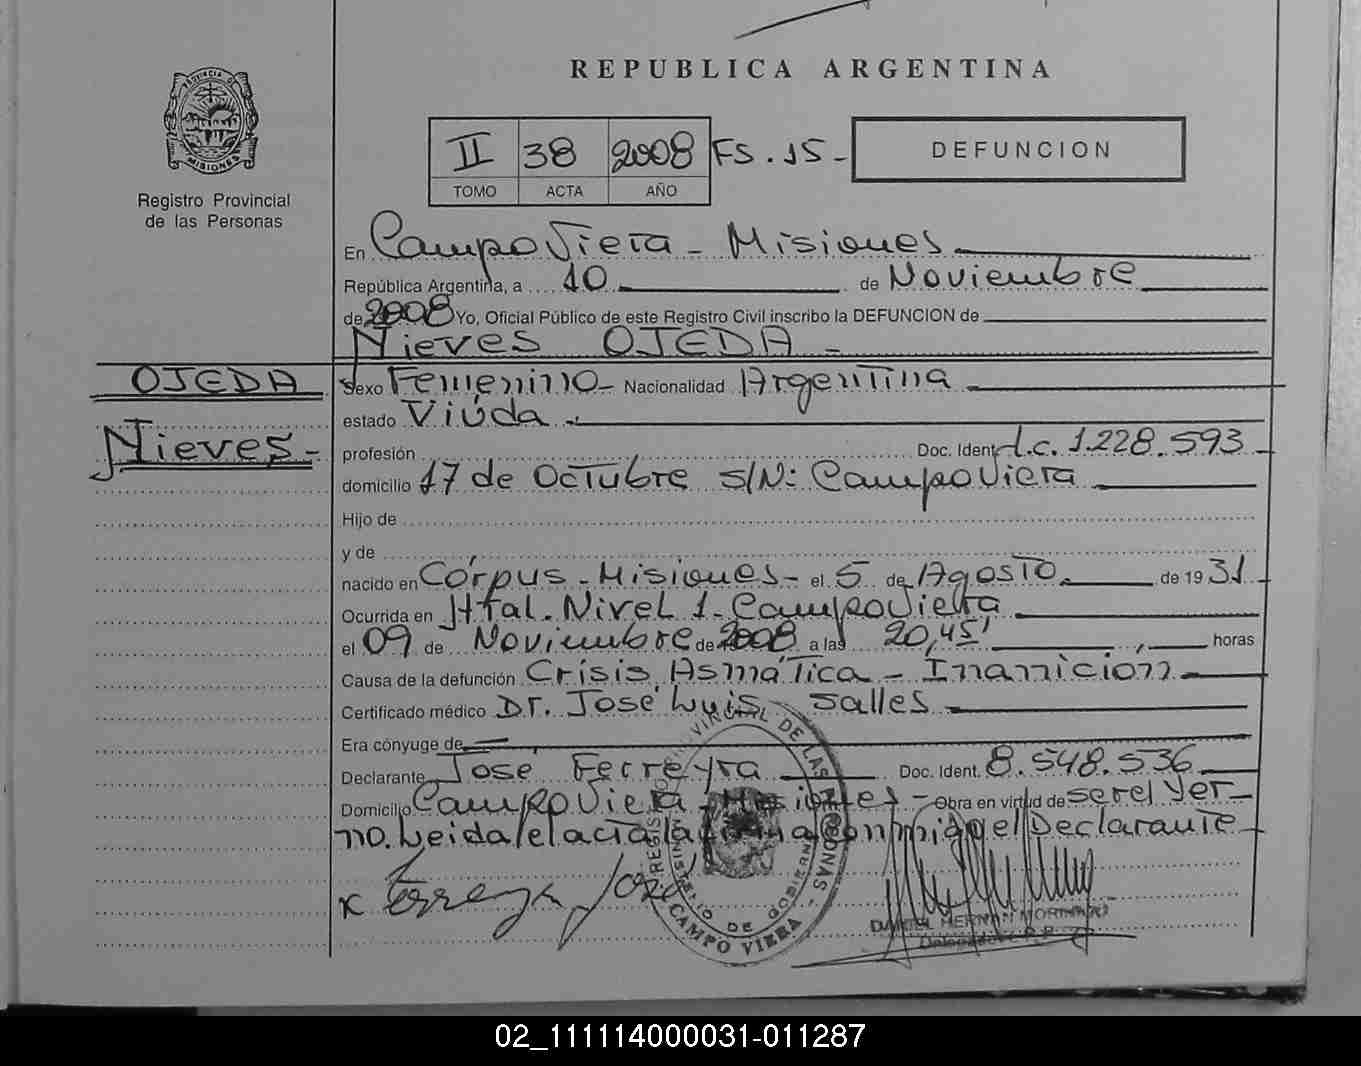 REPUBLICA ARGENTINA
PROVINCIA DE MISIONES
Registro Provincial
de las Personas
II 38 2008 FS. 15-
TOMO ACTA AÑO
DEFUNCION
En Campo Viera - Misiones
República Argentina, a 10 de Noviembre
de 2008 Yo, Oficial Público de este Registro Civil inscribo la DEFUNCION de
Nieves OJEDA -
OJEDA
Nieves -
Sexo Femenino - Nacionalidad Argentina
estado Viúda.
profesión Doc. Ident. L.c. 1.228.593
domicilio 17 de Octubre S/N: Campo Viera
Hijo de
y de
nacido en Córpus - Misiones - el 5 de Agosto de 19 31
Ocurrida en Htal. Nivel 1 - Campo Viera
el 09 de Noviembre de 2008 a las 20,45' horas
Causa de la defunción Crisis Asmática - Inanicion
Certificado médico Dr. José Luis Salles
Era cónyuge de
Declarante José Ferreyra Doc. Ident. 8.548.536
Domicilio Campo Viera - Misiones - Obra en virtud de ser el Yer-
no. Leida el acta la firma conmigo el Declarante
x Ferreyra José
CAMPO VIERA
DANIEL HERNAN
02_111114000031-011287